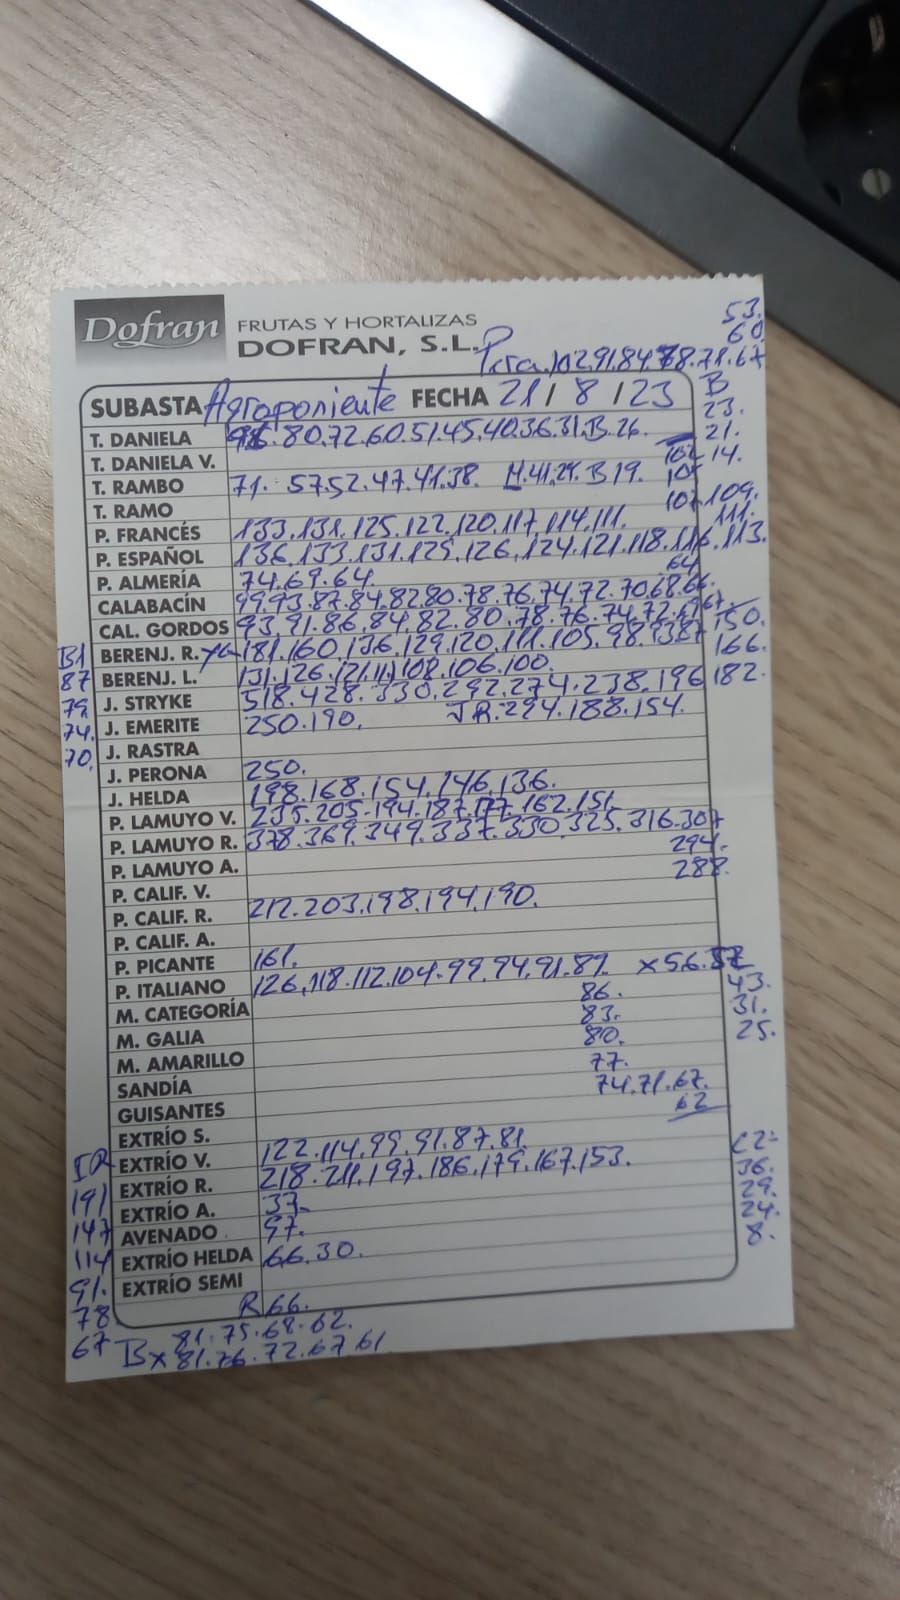 53.
60
Dofran FRUTAS Y HORTALIZAS
DOFRAN, S.L.
102.91.84.78.71.67
SUBASTA Agroponiente FECHA 21 / 8 / 23 B
23.
T. DANIELA 80.72.60.51.45.40.36.31.B.26. 21.
T. DANIELA V. 102 14.
T. RAMBO 71. 57.52.47.41.38. M.41.29.B19. 105
T. RAMO 107.109.
P. FRANCÉS 133.131.125.122.120.117.114.111. 111.
P. ESPAÑOL 136.133.131.129.126.124.121.118.116.113.
P. ALMERÍA 74.69.64. 64
CALABACÍN 99.93.87.84.82.80.78.76.74.72.70.68.66.
CAL. GORDOS 93.91.86.84.82.80.78.76.74.72. 67. 150.
B1 BERENJ. R. 181.160.136.129.120.111.105.98.93.87 166.
87 BERENJ. L. 131.126.121.111.108.106.100.
79 J. STRYKE 518.428.330.292.274.238.196 182.
74. J. EMERITE 250.190. JR.294.188.154.
70. J. RASTRA
J. PERONA 250.
J. HELDA 198.168.154.146.136.
P. LAMUYO V. 235.205.194.187.177.162.151
P. LAMUYO R. 378.369.349.337.330.325.316.307
294.
P. LAMUYO A. 288.
P. CALIF. V.
P. CALIF. R. 212.203.198.194.190.
P. CALIF. A.
P. PICANTE 161.
P. ITALIANO 126.118.112.104.99.94.91.89. x56.52
M. CATEGORÍA 86. 43.
M. GALIA 83. 31.
M. AMARILLO 80. 25.
SANDÍA 77.
GUISANTES 74.71.67.
62
EXTRÍO S.
EXTRÍO V. 122.114.99.91.87.81.
EXTRÍO R. 218.211.197.186.179.167.153. 36.
191 EXTRÍO A. 37. 29.
147 AVENADO 97. 24.
114 EXTRÍO HELDA 66.30. 8.
91. EXTRÍO SEMI
78 R66.
67 81.75.68.62.
Bx 81.76.72.67.61